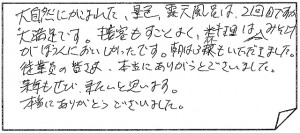 大自然にかこまれた、景色、露天風呂は、2回目ですが
大満足です。接客もすごくよく、料理は みそ汁
がばつぐんにおいしかったです。朝は3杯もいただきました。
従業員の皆さま、本当にありがとうございました。
来年もぜひ、またと思います。
本当にありがとうございました。